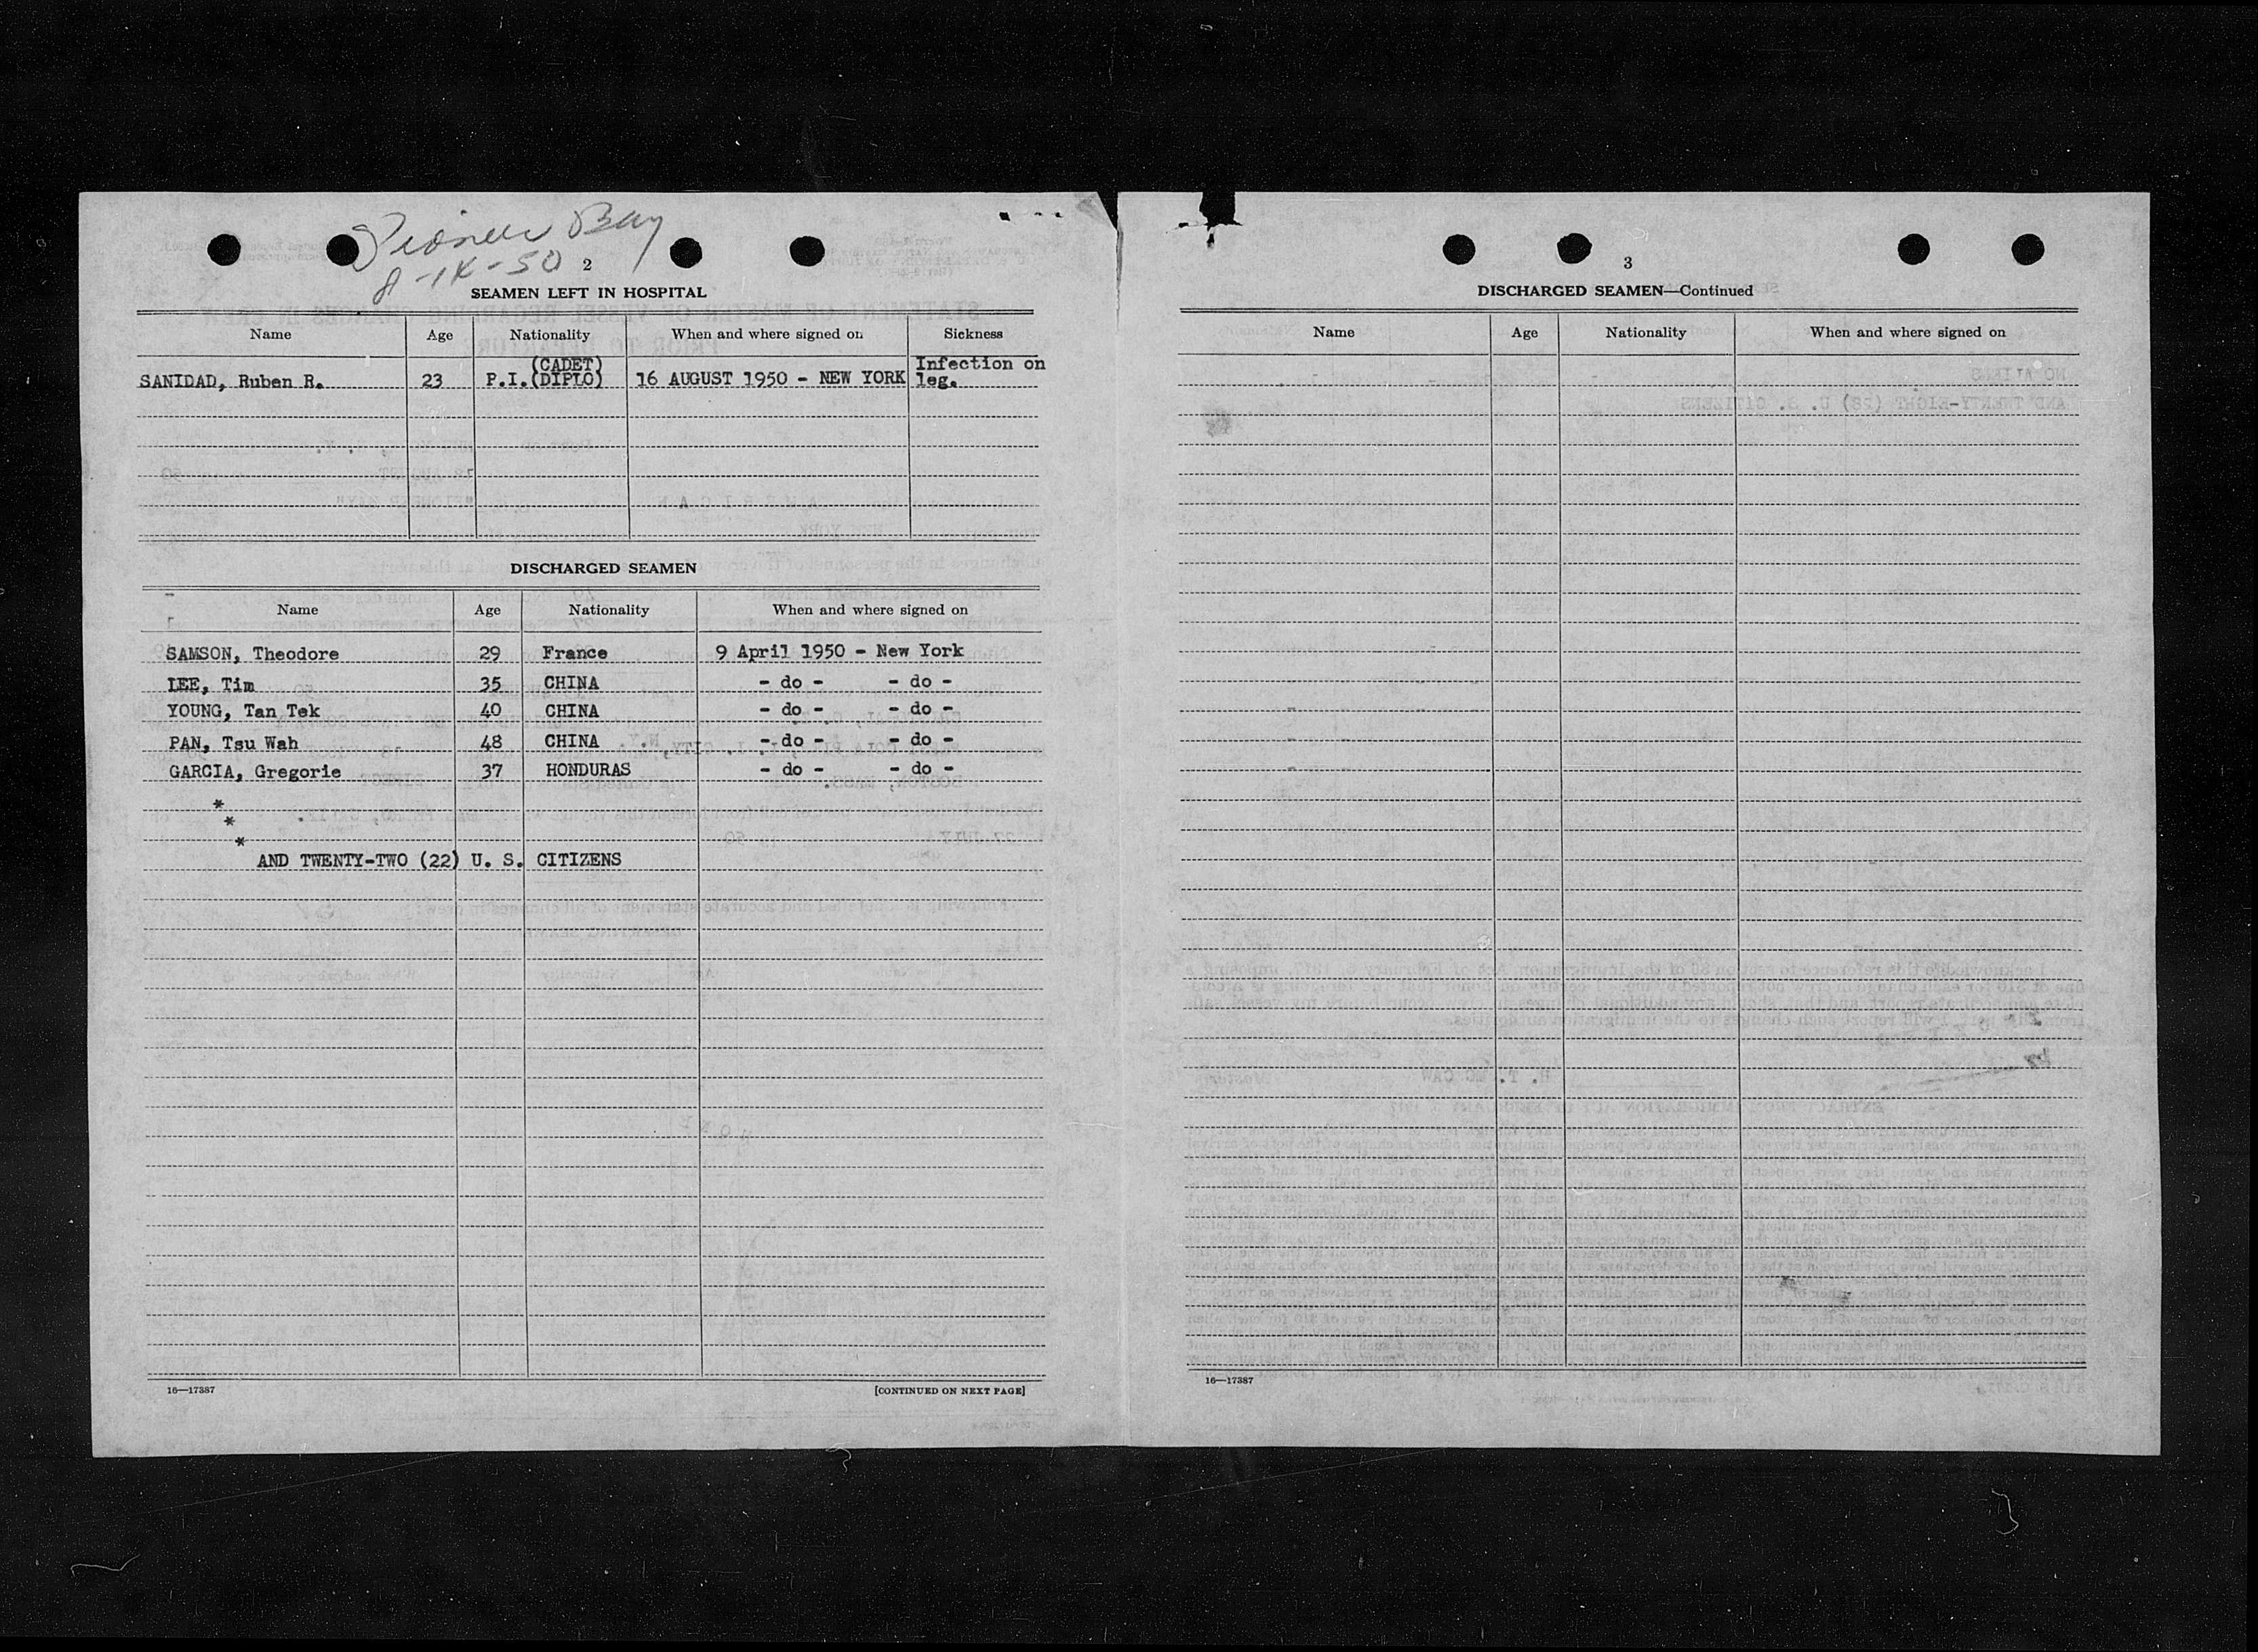 Pioneer Bay
8-14-50
2
SEAMEN LEFT IN HOSPITAL
Name Age Nationality When and where signed on Sickness
SANIDAD, Ruben R. 23 P.I. (CADET) (DIPLO) 16 AUGUST 1950 - NEW YORK Infection on leg.
DISCHARGED SEAMEN
Name Age Nationality When and where signed on
SAMSON, Theodore 29 France 9 April 1950 - New York
LEE, Tim 35 CHINA - do - - do -
YOUNG, Tan Tek 40 CHINA - do - - do -
PAN, Tsu Wah 48 CHINA - do - - do -
GARCIA, Gregorie 37 HONDURAS - do - - do -
*
*
*
AND TWENTY-TWO (22) U. S. CITIZENS
16—17387 [CONTINUED ON NEXT PAGE]
3
DISCHARGED SEAMEN—Continued
Name Age Nationality When and where signed on
16—17387